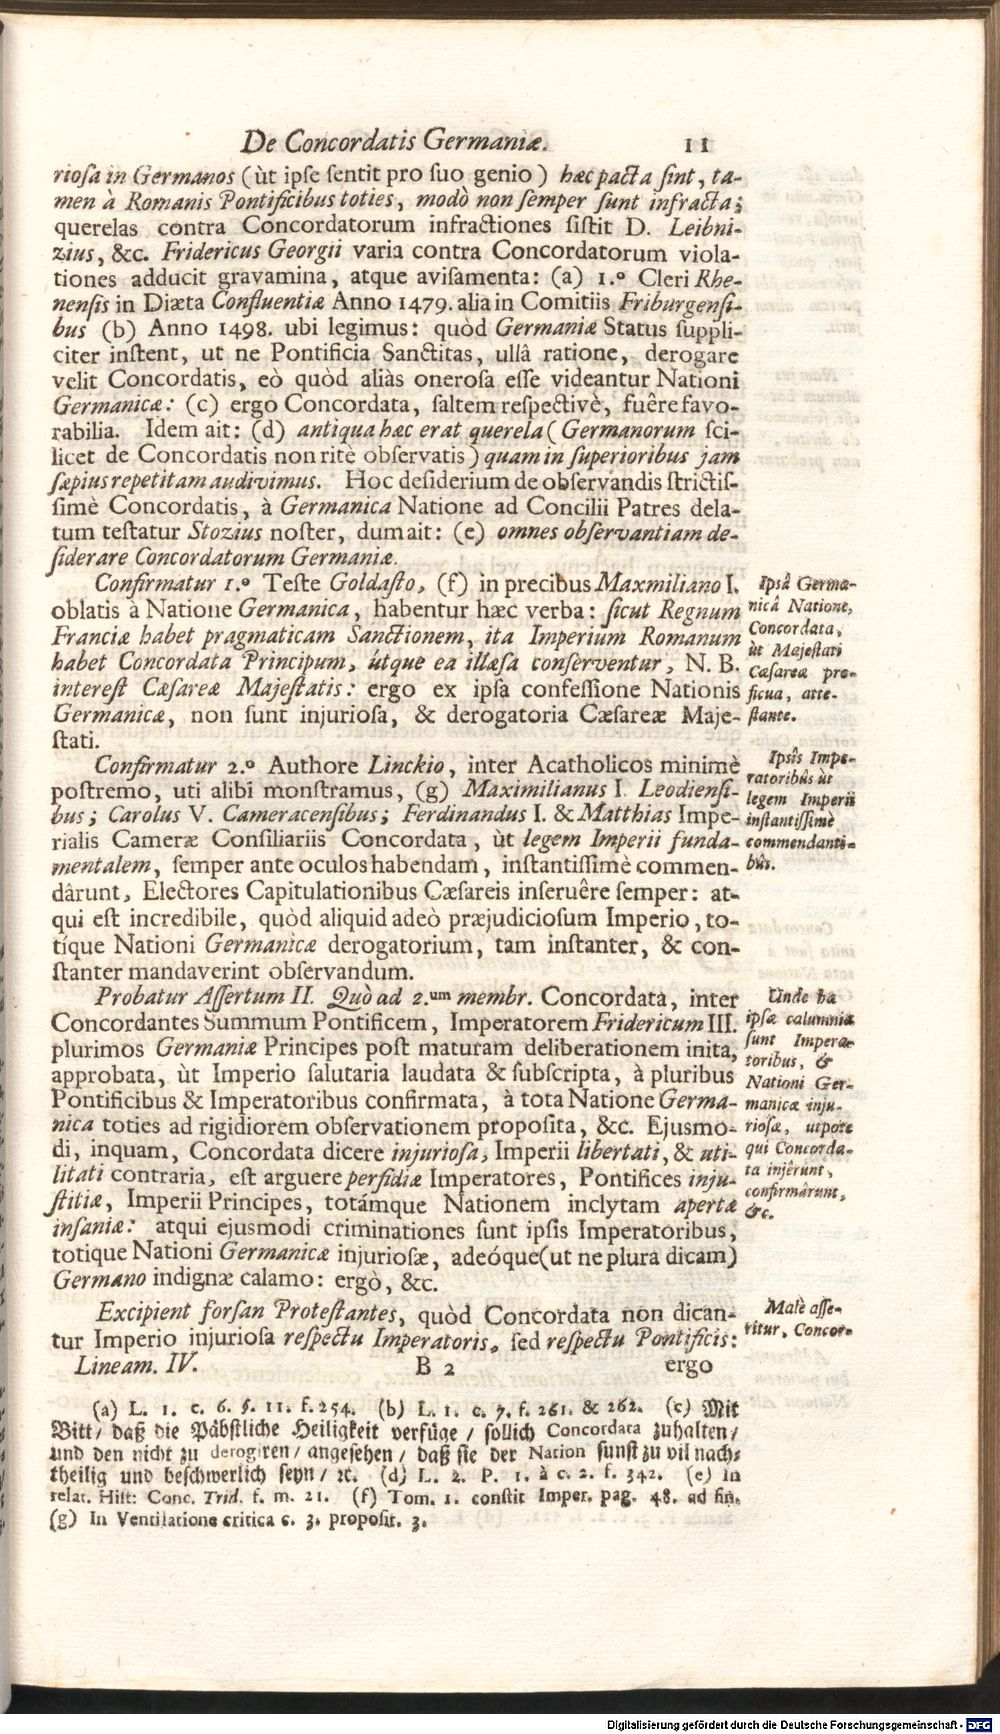 De Concordatis Germaniæ. 11
riosa in Germanos (ùt ipse sentit pro suo genio) hæc pacta sint, ta-
men à Romanis Pontificibus toties, modò non semper sunt infracta;
querelas contra Concordatorum infractiones sistit D. Leibni-
zius, &c. Fridericus Georgii varia contra Concordatorum viola-
tiones adducit gravamina, atque avisamenta: (a) 1.º Cleri Rhe-
nensis in Diæta Confluentiæ Anno 1479. alia in Comitiis Friburgensi-
bus (b) Anno 1498. ubi legimus: quòd Germaniæ Status suppli-
citer instent, ut ne Pontificia Sanctitas, ullâ ratione, derogare
velit Concordatis, eò quòd aliàs onerosa esse videantur Nationi
Germanicæ: (c) ergo Concordata, saltem respectivè, fuêre favo-
rabilia. Idem ait: (d) antiqua hæc erat querela (Germanorum sci-
licet de Concordatis non ritè observatis) quam in superioribus jam
sæpius repetitam audivimus. Hoc desiderium de observandis strictis-
simè Concordatis, à Germanica Natione ad Concilii Patres dela-
tum testatur Stozius noster, dum ait: (e) omnes observantiam de-
siderare Concordatorum Germaniæ.
Confirmatur 1.º Teste Goldasto, (f) in precibus Maxmiliano I.
oblatis à Natione Germanica, habentur hæc verba: sicut Regnum
Franciæ habet pragmaticam Sanctionem, ita Imperium Romanum
habet Concordata Principum, útque ea illæsa conserventur, N. B.
interest Cæsareæ Majestatis: ergo ex ipsa confessione Nationis
Germanicæ, non sunt injuriosa, & derogatoria Cæsareæ Maje-
stati.
Ipsâ Germa-
nicâ Natione,
Concordata,
ùt Majestati
Cæsareæ pro-
ficua, atte-
stante.
Confirmatur 2.º Authore Linckio, inter Acatholicos minimè
postremo, uti alibi monstramus, (g) Maximilianus I. Leodiensi-
bus; Carolus V. Cameracensibus; Ferdinandus I. & Matthias Impe-
rialis Cameræ Consiliariis Concordata, ùt legem Imperii funda-
mentalem, semper ante oculos habendam, instantissimè commen-
dârunt, Electores Capitulationibus Cæsareis inseruêre semper: at-
qui est incredibile, quòd aliquid adeò præjudiciosum Imperio, to-
tíque Nationi Germanicæ derogatorium, tam instanter, & con-
stanter mandaverint observandum.
Ipsîs Impe-
ratoribûs ùt
legem Imperii
instantissimè
commendanti-
bûs.
Probatur Assertum II. Quò ad 2.um membr. Concordata, inter
Concordantes Summum Pontificem, Imperatorem Fridericum III.
plurimos Germaniæ Principes post maturam deliberationem inita,
approbata, ùt Imperio salutaria laudata & subscripta, à pluribus
Pontificibus & Imperatoribus confirmata, à tota Natione Germa-
nica toties ad rigidiorem observationem proposita, &c. Ejusmo-
di, inquam, Concordata dicere injuriosa, Imperii libertati, & uti-
litati contraria, est arguere perfidiæ Imperatores, Pontifices inju-
stitiæ, Imperii Principes, totámque Nationem inclytam apertæ
insaniæ: atqui ejusmodi criminationes sunt ipsis Imperatoribus,
totique Nationi Germanicæ injuriosæ, adeóque (ut ne plura dicam)
Germano indignæ calamo: ergò, &c.
Unde hæ
ipsæ calumniæ
sunt Impera-
toribus, &
Nationi Ger-
manicæ inju-
riosæ, utpote
qui Concorda-
ta injêrunt,
confirmârunt,
&c.
Excipient forsan Protestantes, quòd Concordata non dican-
tur Imperio injuriosa respectu Imperatoris, sed respectu Pontificis:
Malè asse-
ritur, Concor-
Lineam. IV. B 2 ergo
(a) L. 1. c. 6. §. 11. f. 254. (b) L. 1. c. 7. f. 261. & 262. (c) Mit
Bitt/ daß die Päbstliche Heiligkeit verfüge / sollich Concordata zuhalten/
und den nicht zu derogiren/ angesehen/ daß sie der Nation sunst zu vil nach-
theilig und beschwerlich seyn/ ꝛc. (d) L. 2. P. 1. à c. 2. f. 342. (e) In
relat. Hist: Conc. Trid. f. m. 21. (f) Tom. 1. constit Imper. pag. 48. ad fin.
(g) In Ventilatione critica c. 3. proposit. 3.
Digitalisierung gefördert durch die Deutsche Forschungsgemeinschaft - DFG